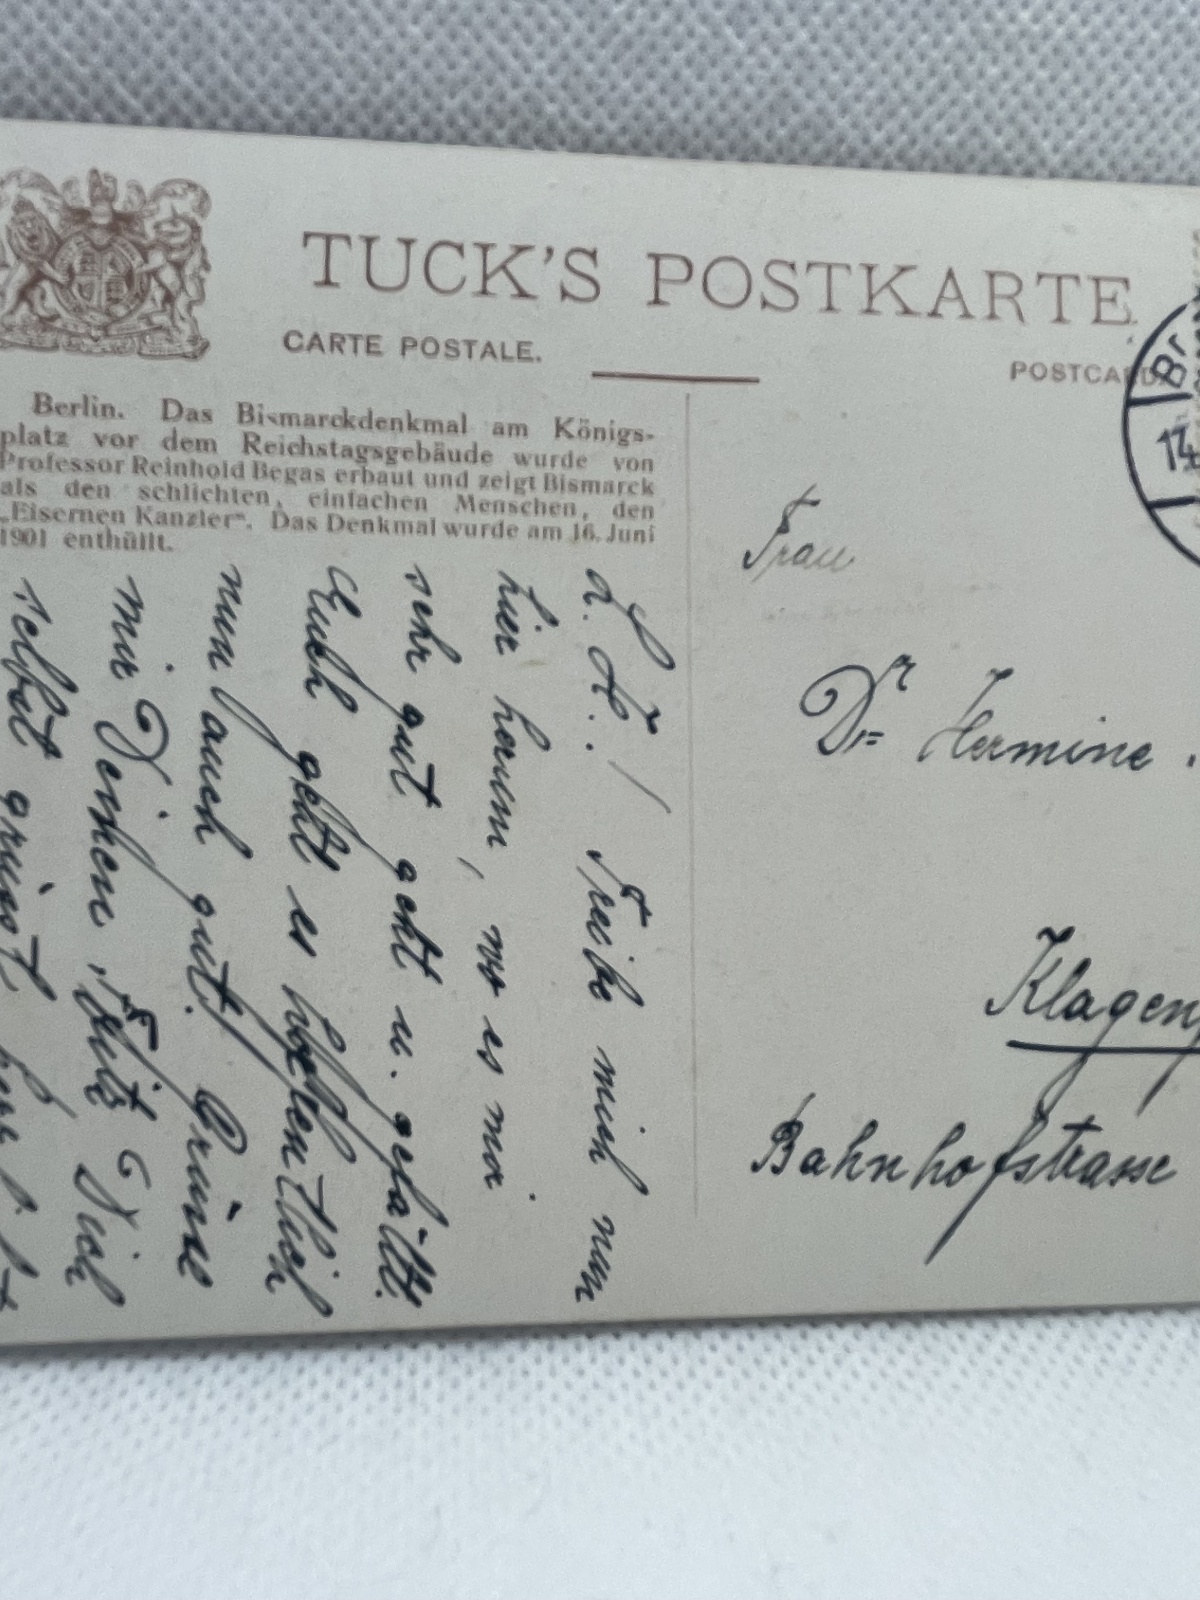 TUCK'S POSTKARTE
CARTE POSTALE.
POSTCARD.
Berlin. Das Bismarckdenkmal am Königs-
platz vor dem Reichstagsgebäude wurde von
Professor Reinhold Begas erbaut und zeigt Bismarck
als den schlichten, einfachen Menschen, den
„Eisernen Kanzler“. Das Denkmal wurde am 16. Juni
1901 enthüllt.
L. H.! Treibe mich nun
hier herum, wo es mir
sehr gut geht u. gefällt.
Euch geht es hoffentlich
nun auch gut! Grüße
mir Deinen Fritz Dich
selbst grüsst
Br
14
Frau
Dr Hermine
Klagenf
Bahnhofstrasse